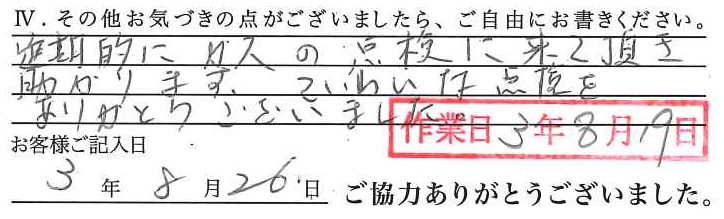 Ⅳ．その他お気づきの点がございましたら、ご自由にお書きください。
定期的にガスの点検に来て頂き
助かります。ていねいな点検を
ありがとうございました。
作業日 3年8月19日
お客様ご記入日
3 年 8 月 26 日 ご協力ありがとうございました。